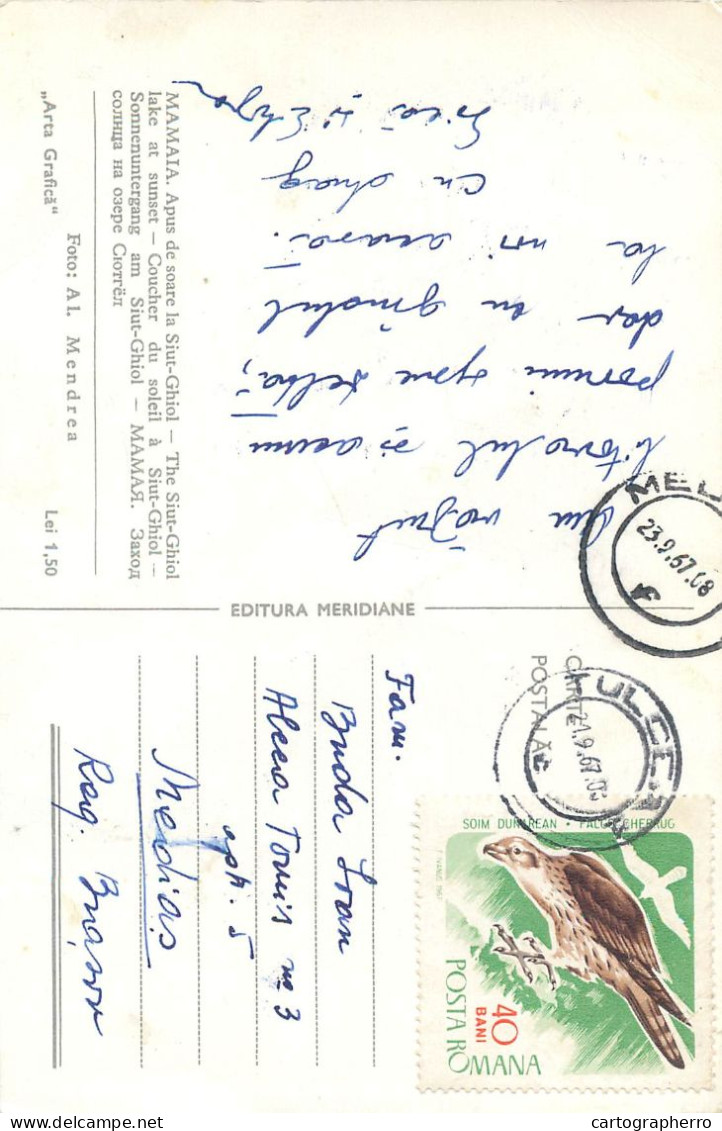 MAMAIA. Apus de soare la Siut-Ghiol — The Siut-Ghiol
lake at sunset — Coucher du soleil à Siut-Ghiol —
Sonnenuntergang am Siut-Ghiol — МАМАЯ. Заход
солнца на озере Сютгёл
Foto: Al. Mendrea
„Arta Grafică“
Lei 1,50
Am văzut
litoralul și acum
pornim spre deltă,
dar cu gîndul
la noi acasă.
Cu drag
EDITURA MERIDIANE
CARTE
POSTALĂ
MED
23.9.67.08
TULCEA
21.9.67
SOIM DUNĂREAN • FALCO CHERRUG
40
BANI
POSTA ROMANA
Fam.
Buda Ioan
Aleea Tomis no 3
apt. 5
Mediaș
Rag. Brașov
cartographerro